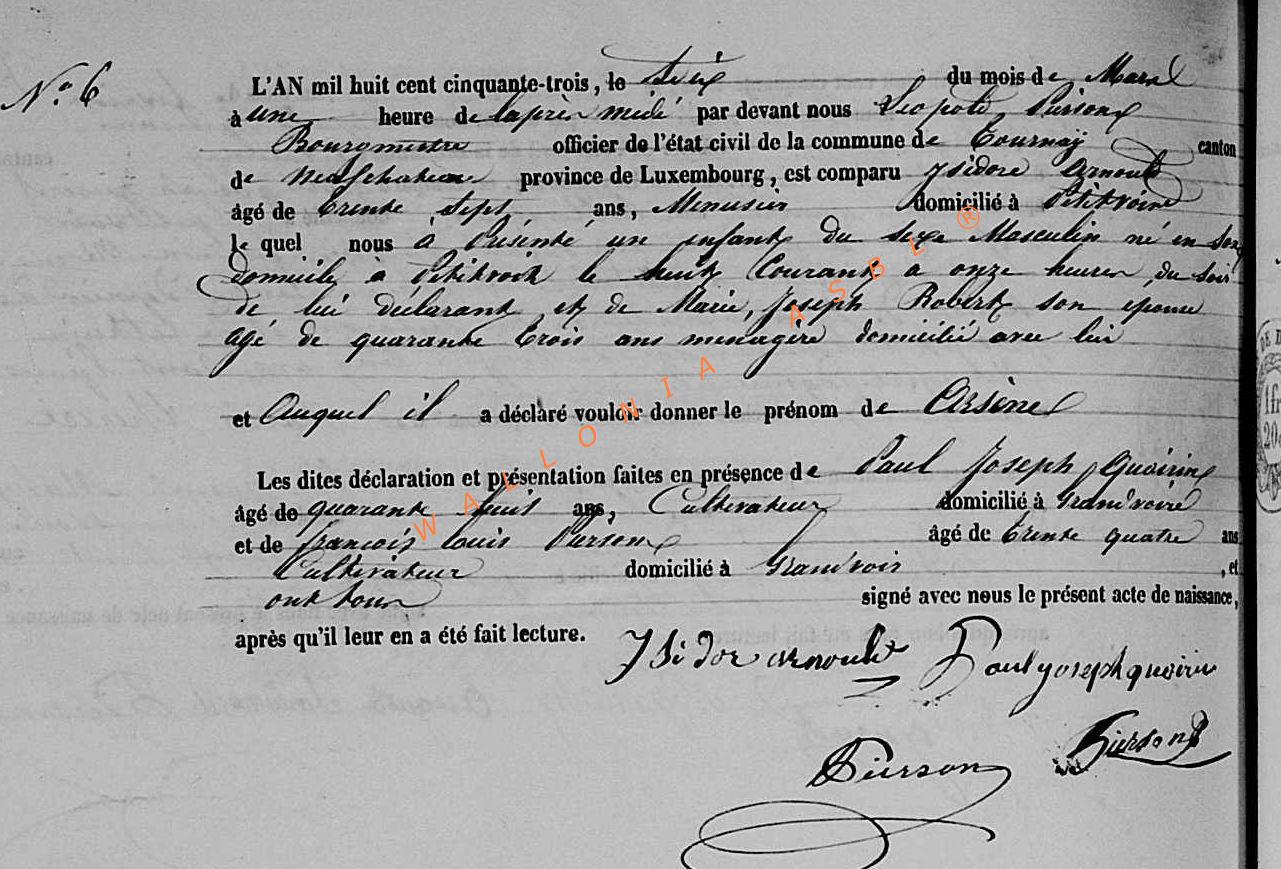 N.o 6
L'AN mil huit cent cinquante-trois, le dix du mois de Mars
à une heure de laprès midi par devant nous Léopold Pierson
Bourgmestre officier de l'état civil de la commune de Tournay canton
de Neufchateau province de Luxembourg, est comparu Isidore Arnould
âgé de trente sept ans, Menusier domicilié à Petitvoire
le quel nous à Présenté un enfant du sexe Masculin né en son
domicile à Petitvoir le huit Courant à onze heures du Soir
de lui déclarant et de Marie, Joseph Robert son épouse
agé de quarante trois ans menagère domicilié avec lui
et Auquel il a déclaré vouloir donner le prénom de Arsène
Les dites déclaration et présentation faites en présence de Paul Joseph Quoirin
âgé de quarante huit ans, Cultivateur domicilié à Grandvoire
et de françois louis Pierson âgé de trente quatre ans
Cultivateur domicilié à Grandvoir , et
ont tous signé avec nous le présent acte de naissance,
après qu'il leur en a été fait lecture.
Isidor arnould Paul joseph quoirin
Pierson Pierson
WALLONIA ASBL ®